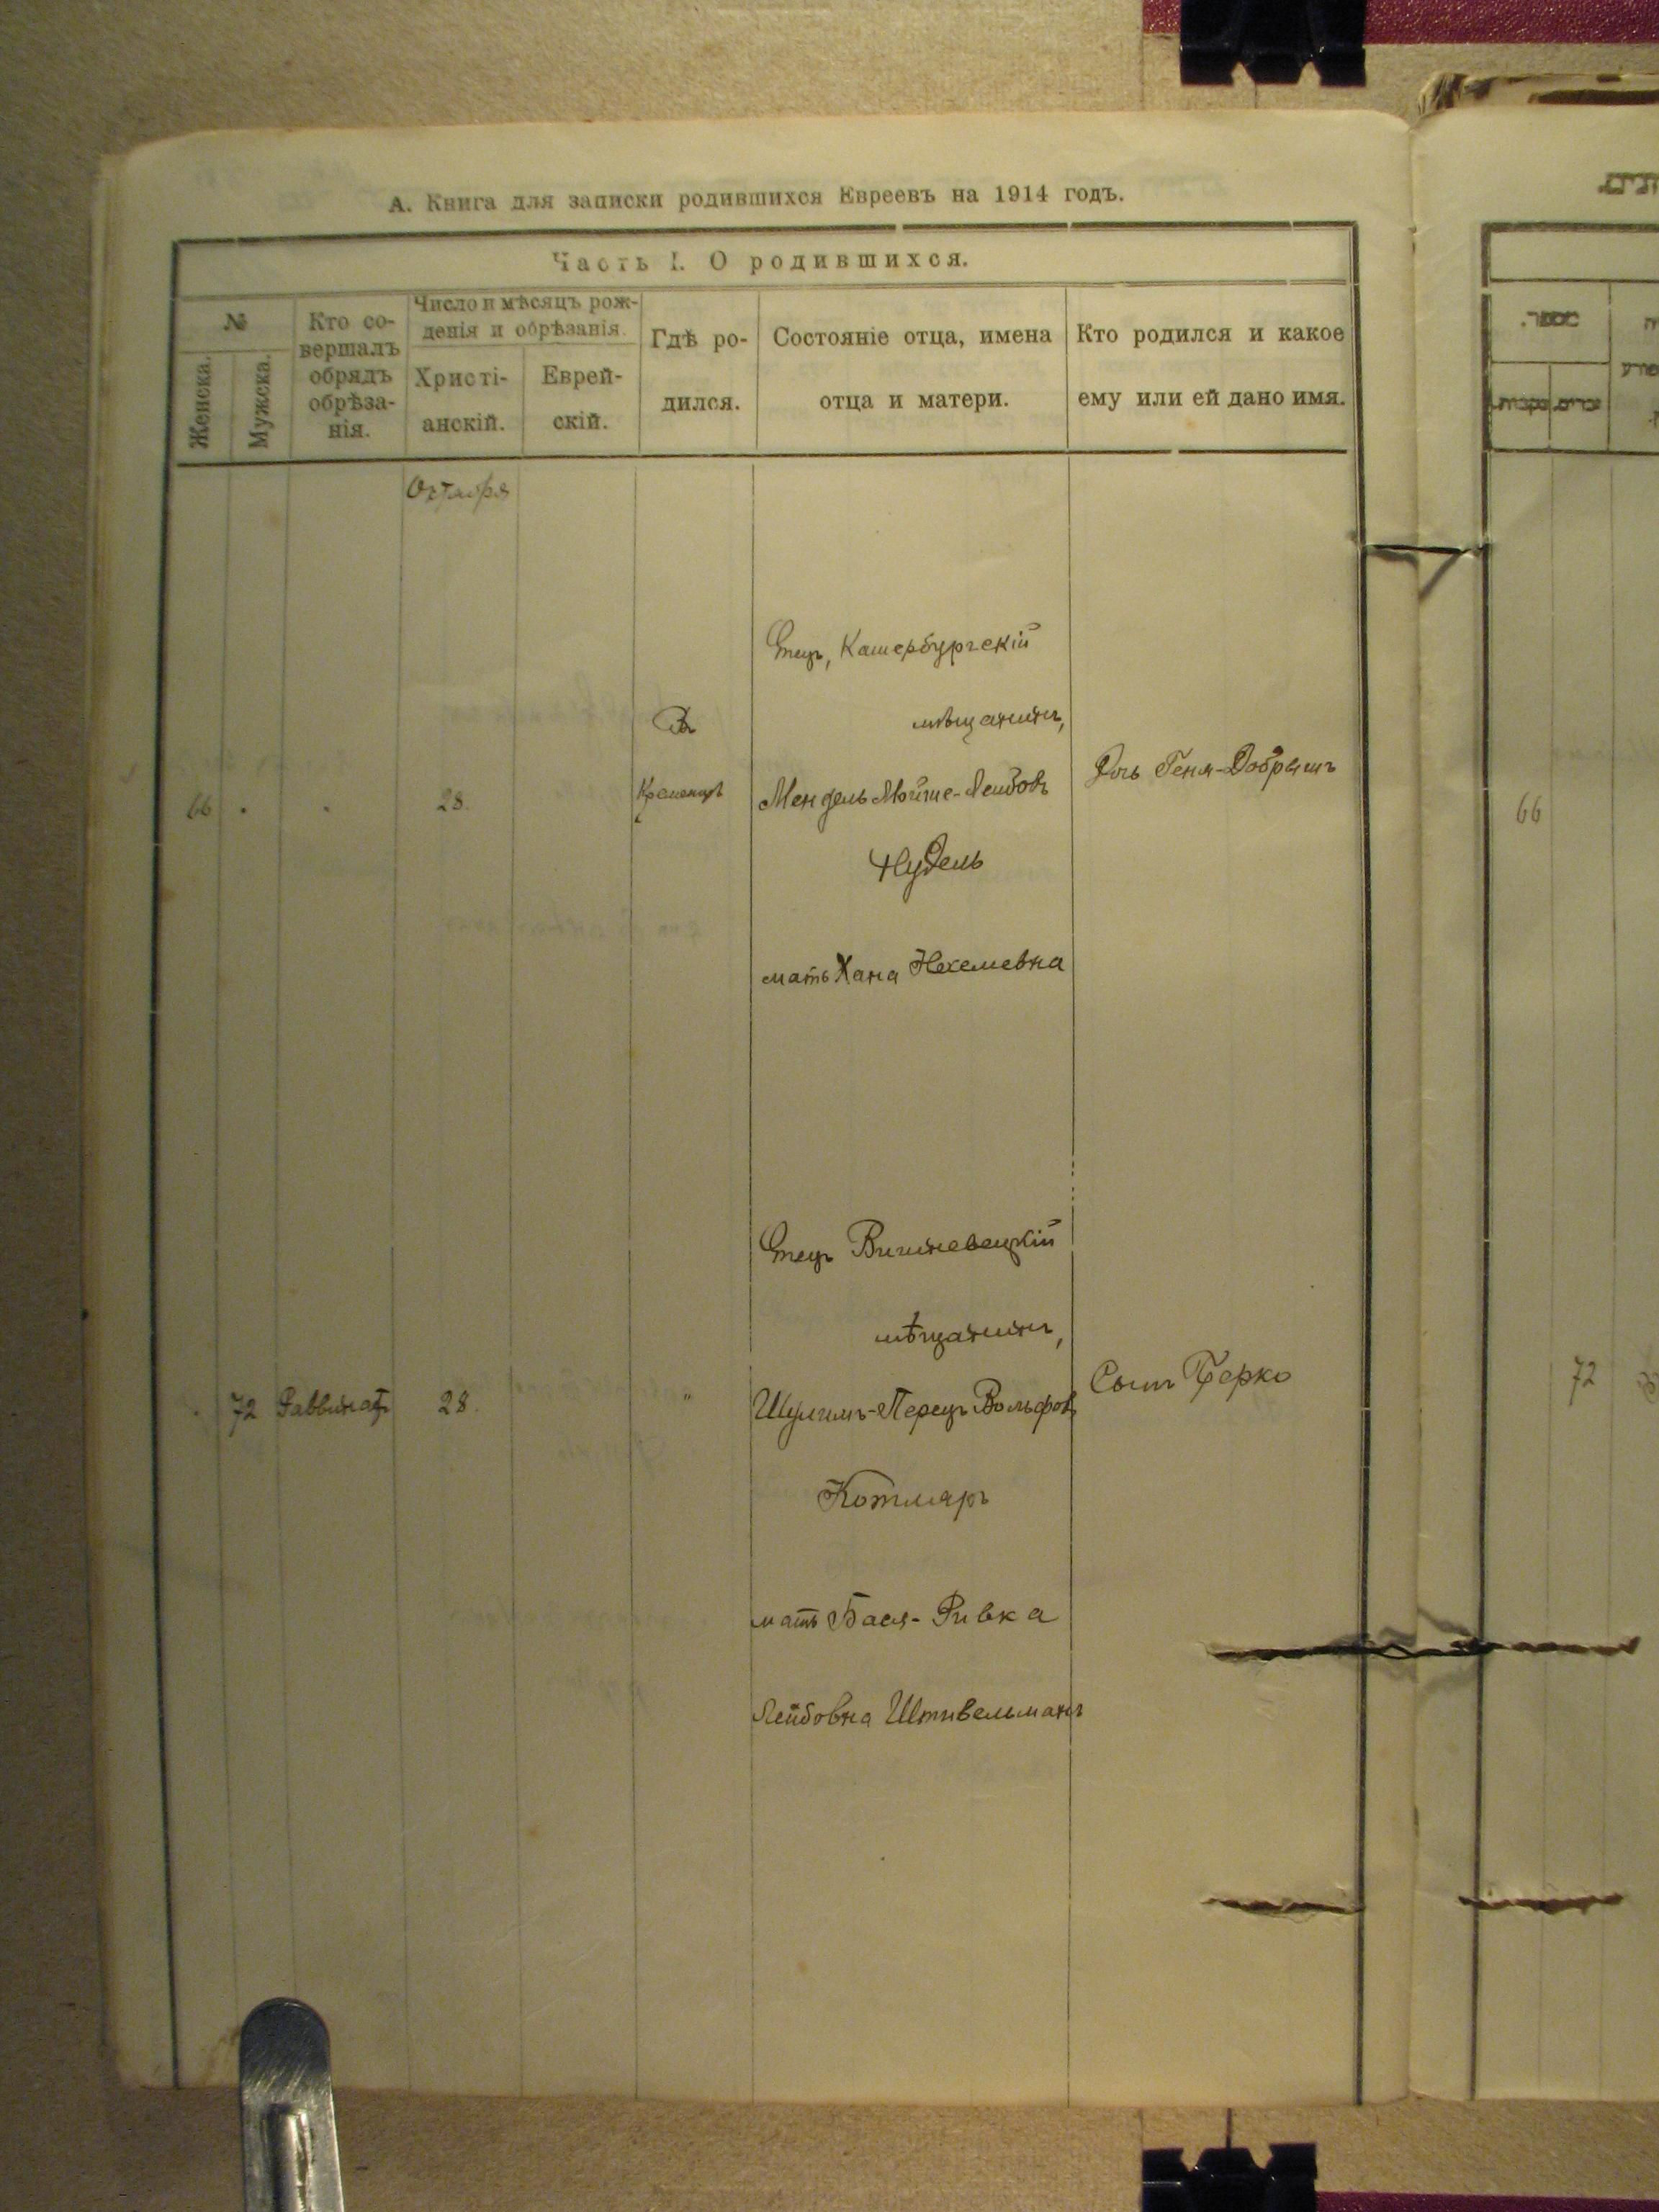 А. Книга для записки родившихся Евреевъ на 1914 годъ.
Часть I. О родившихся.
№
Женска.
Мужска.
Кто со-
вершалъ
обрядъ
обрѣза-
нія.
Число и мѣсяцъ рож-
денія и обрѣзанія.
Христі-
анскій.
Еврей-
скій.
Гдѣ ро-
дился.
Состояніе отца, имена
отца и матери.
Кто родился и какое
ему или ей дано имя.
Октября
Отецъ, Катербургскій
Въ
мѣщанинъ,
66
28
Кременцѣ
Мендель Мойше-Лейбовъ
Дочь Геня-Добрышъ
66
Нудель
мать Хана Нехемевна
Отецъ Вишневецкій
мѣщанинъ,
72 Раввинатъ 28. "
Шулимъ-Перецъ Вольфовъ
Сынъ Берко
72
Котляръ
мать Бася-Ривка
Лейбовна Штивельманъ